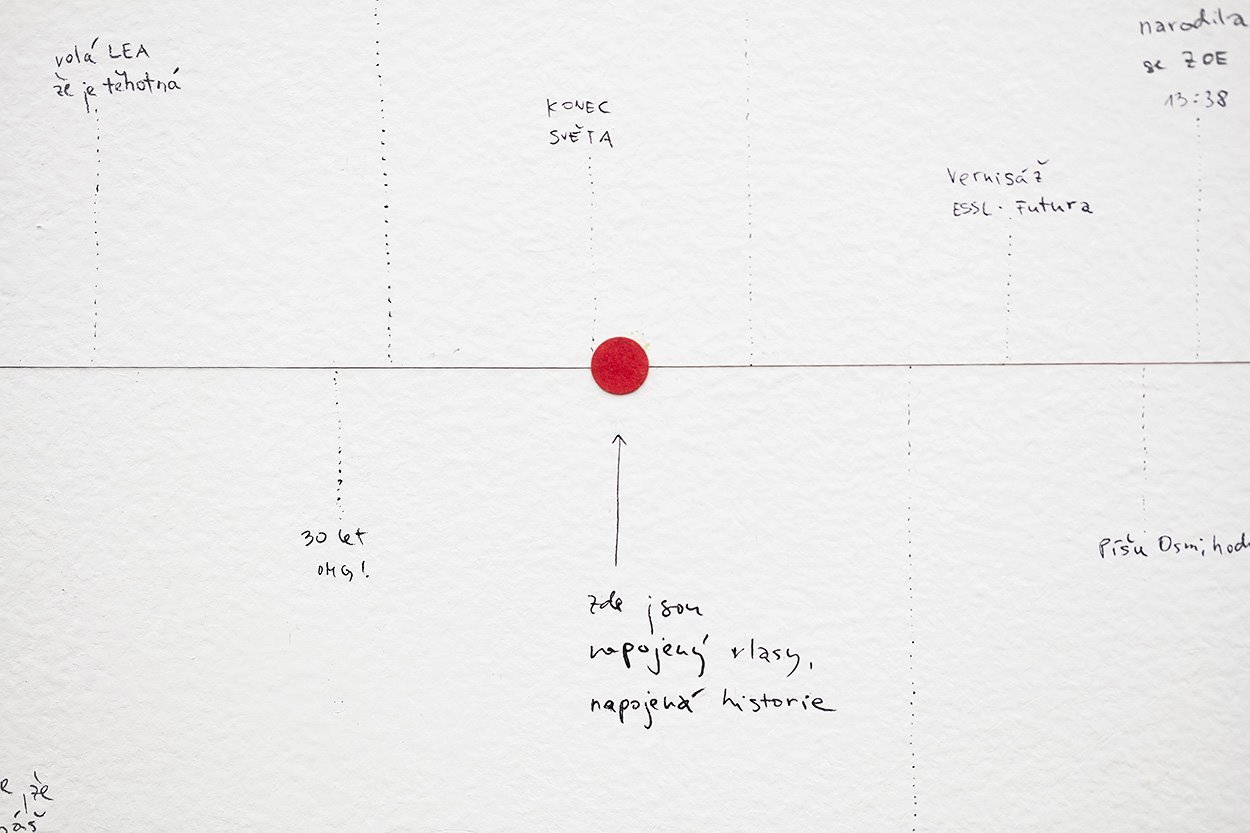 volá LEA
že je těhotná
KONEC
SVĚTA
narodila
se ZOE
13:38
Vernisáž
ESSL · Futura
30 let
OMG!
zde jsou
napojený vlasy,
napojená historie
Píšu
že